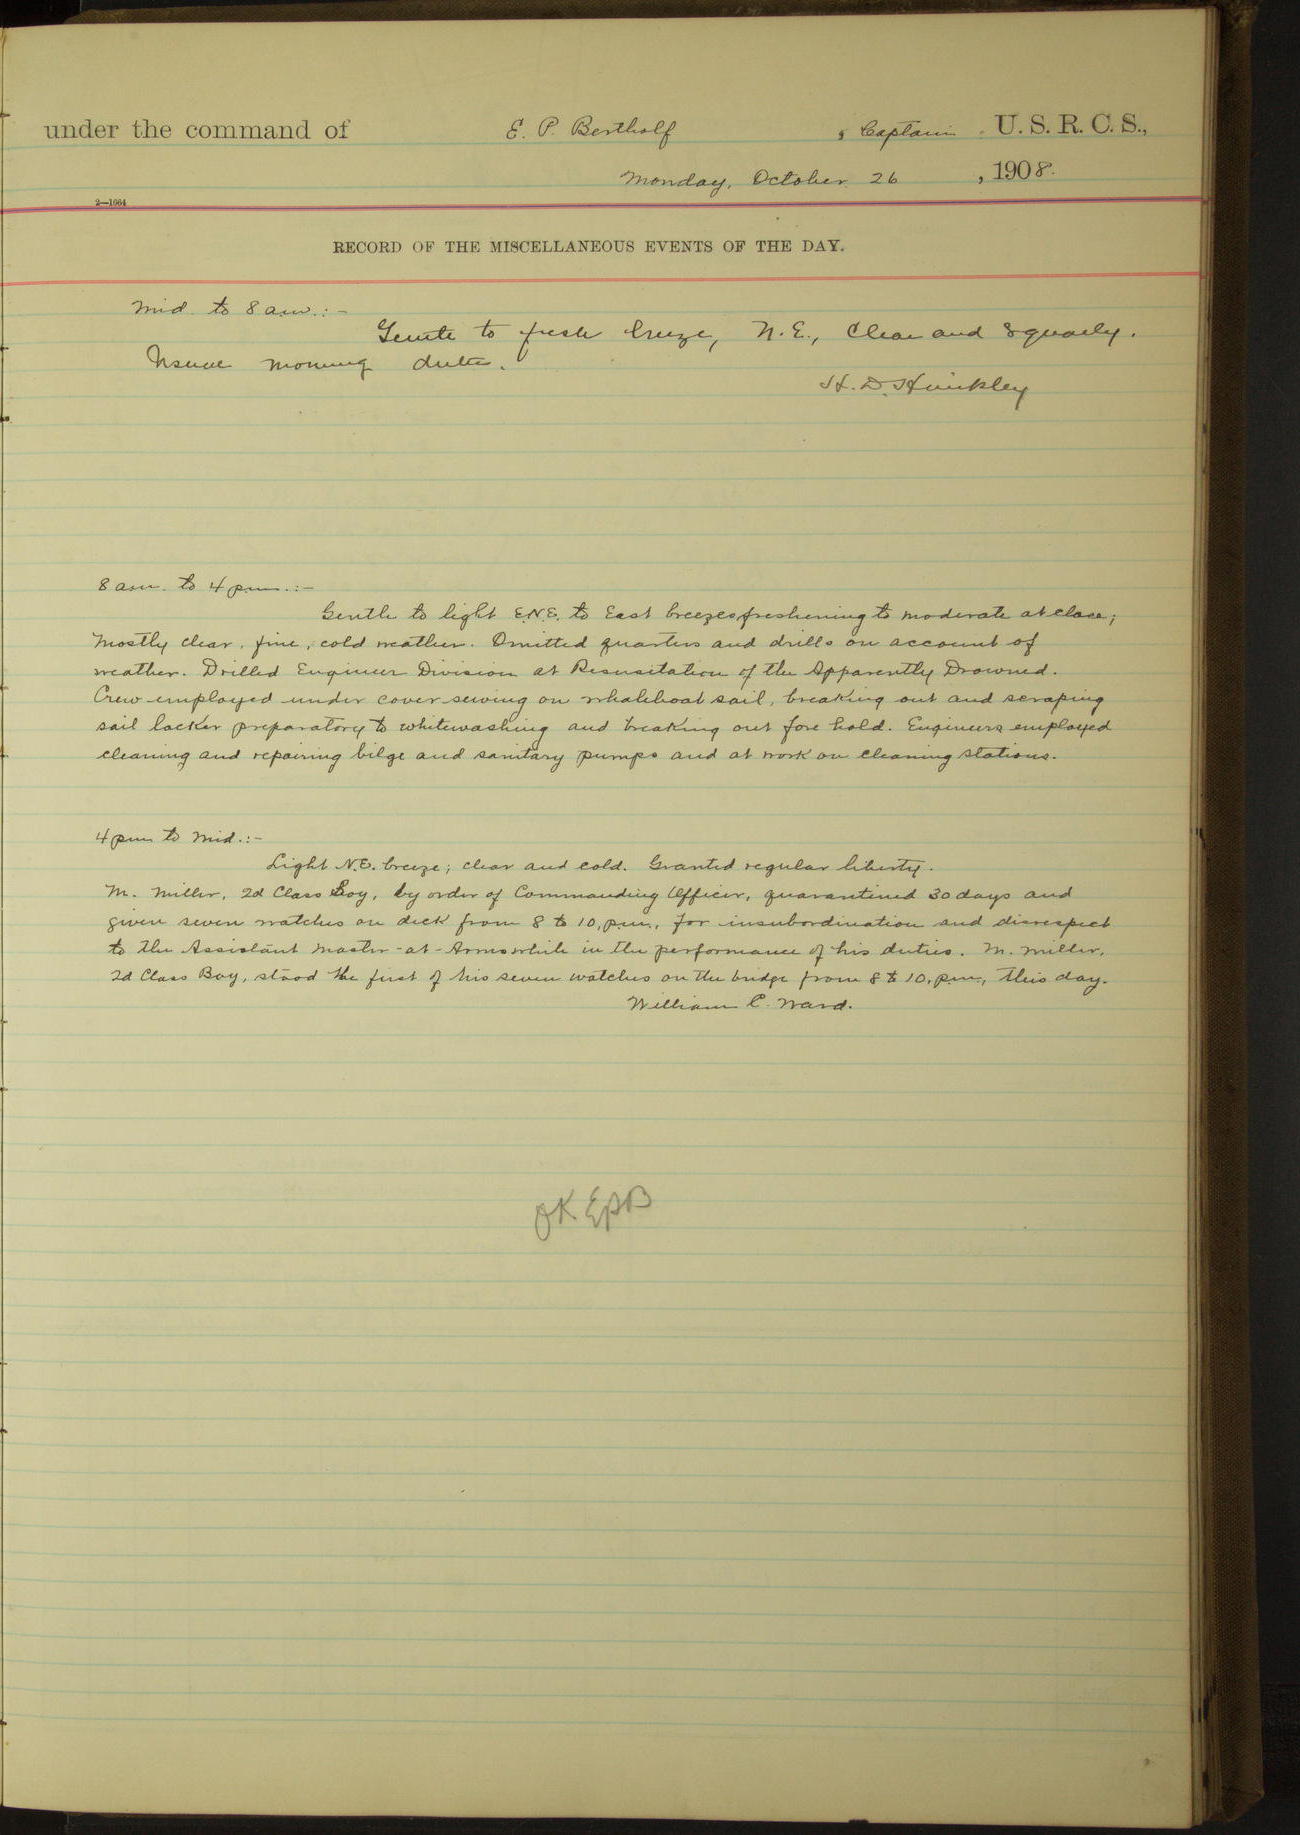 under the command of E. P. Bertholf, Captain U. S. R. C. S.,
Monday, October 26, 1908.
2—1664
RECORD OF THE MISCELLANEOUS EVENTS OF THE DAY.
Mid. to 8 a.m.:-
Gentle to fresh breeze, N.E., Clear and squally.
Usual morning duties.
H. D. Hinckley
8 a.m. to 4 p.m.:-
Gentle to light E.N.E. to East breezes freshening to moderate at close;
Mostly clear, fine, cold weather. Omitted quarters and drills on account of
weather. Drilled Engineer Division at Resusitation of the Apparently Drowned.
Crew employed under cover sewing on whaleboat sail, breaking out and scraping
sail locker preparatory to whitewashing and breaking out fore hold. Engineers employed
cleaning and repairing bilge and sanitary pumps and at work on cleaning stations.
4 p.m. to Mid.:-
Light N.E. breeze; clear and cold. Granted regular liberty.
M. Miller, 2d Class Boy, by order of Commanding Officer, quarantined 30 days and
given seven watches on deck from 8 to 10, p.m., for insubordination and disrespect
to the Assistant Master-at-Arms while in the performance of his duties. M. Miller,
2d Class Boy, stood the first of his seven watches on the bridge from 8 to 10, p.m., this day.
William C. Ward.
OK EPB